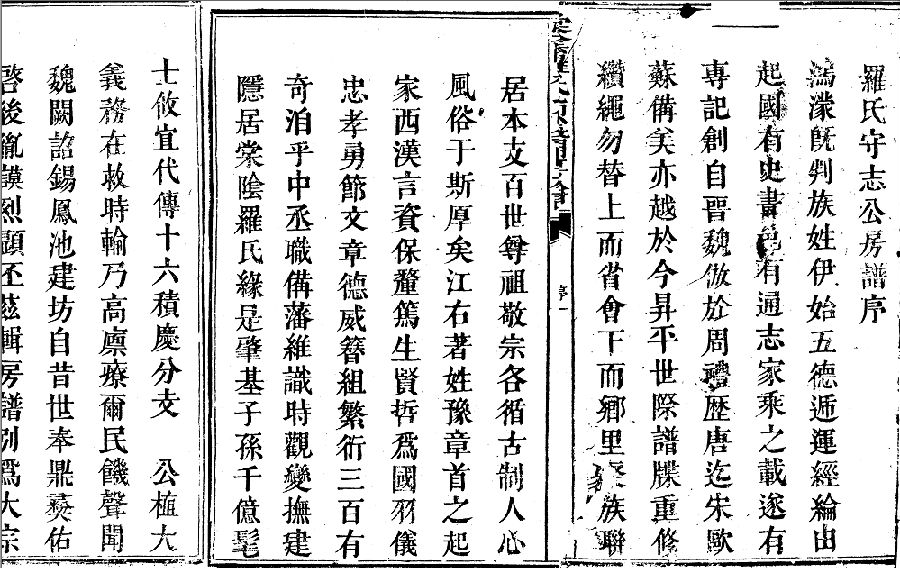 羅氏守志公房譜序
鴻濛旣判族姓伊始五德遞運經綸由
起國有史書邑有通志家乘之載遂有
專記創自晉魏倣於周禮歷唐迄宋歐
蘇備美亦越於今昇平世際譜牒重修
纘繩勿替上而省會下而鄉里家族聯
序
居本支百世尊祖敬宗各循古制人心
風俗于斯厚矣江右著姓豫章首之起
家西漢言資保釐篤生賢哲爲國羽儀
忠孝勇節文章德威簪組繁衍三百有
奇泊乎中丞職備藩維識時觀變撫建
隱居棠陰羅氏緣是肇基子孫千億髦
士攸宜代傳十六積慶分支 公植大
義務在救時輸乃高廩療爾民饑聲聞
魏闕詔錫鳳池建坊自昔世奉鼎彝佑
啓後胤謨烈顯丕茲輯房譜別爲大宗